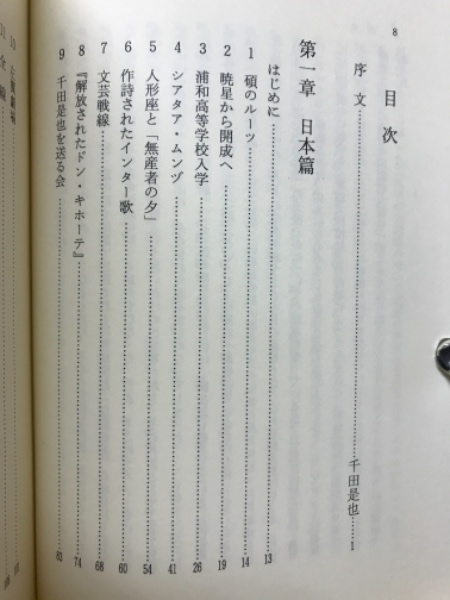 8
目次
序文……千田是也…1
第一章 日本篇
はじめに……13
1 碩のルーツ……14
2 暁星から開成へ……19
3 浦和高等学校入学……26
4 シアタア・ムンヅ……41
5 人形座と「無産者の夕」……54
6 作詩されたインター歌……60
7 文芸戦線……68
8 『解放されたドン・キホーテ』……74
9 千田是也を送る会……83
10
11